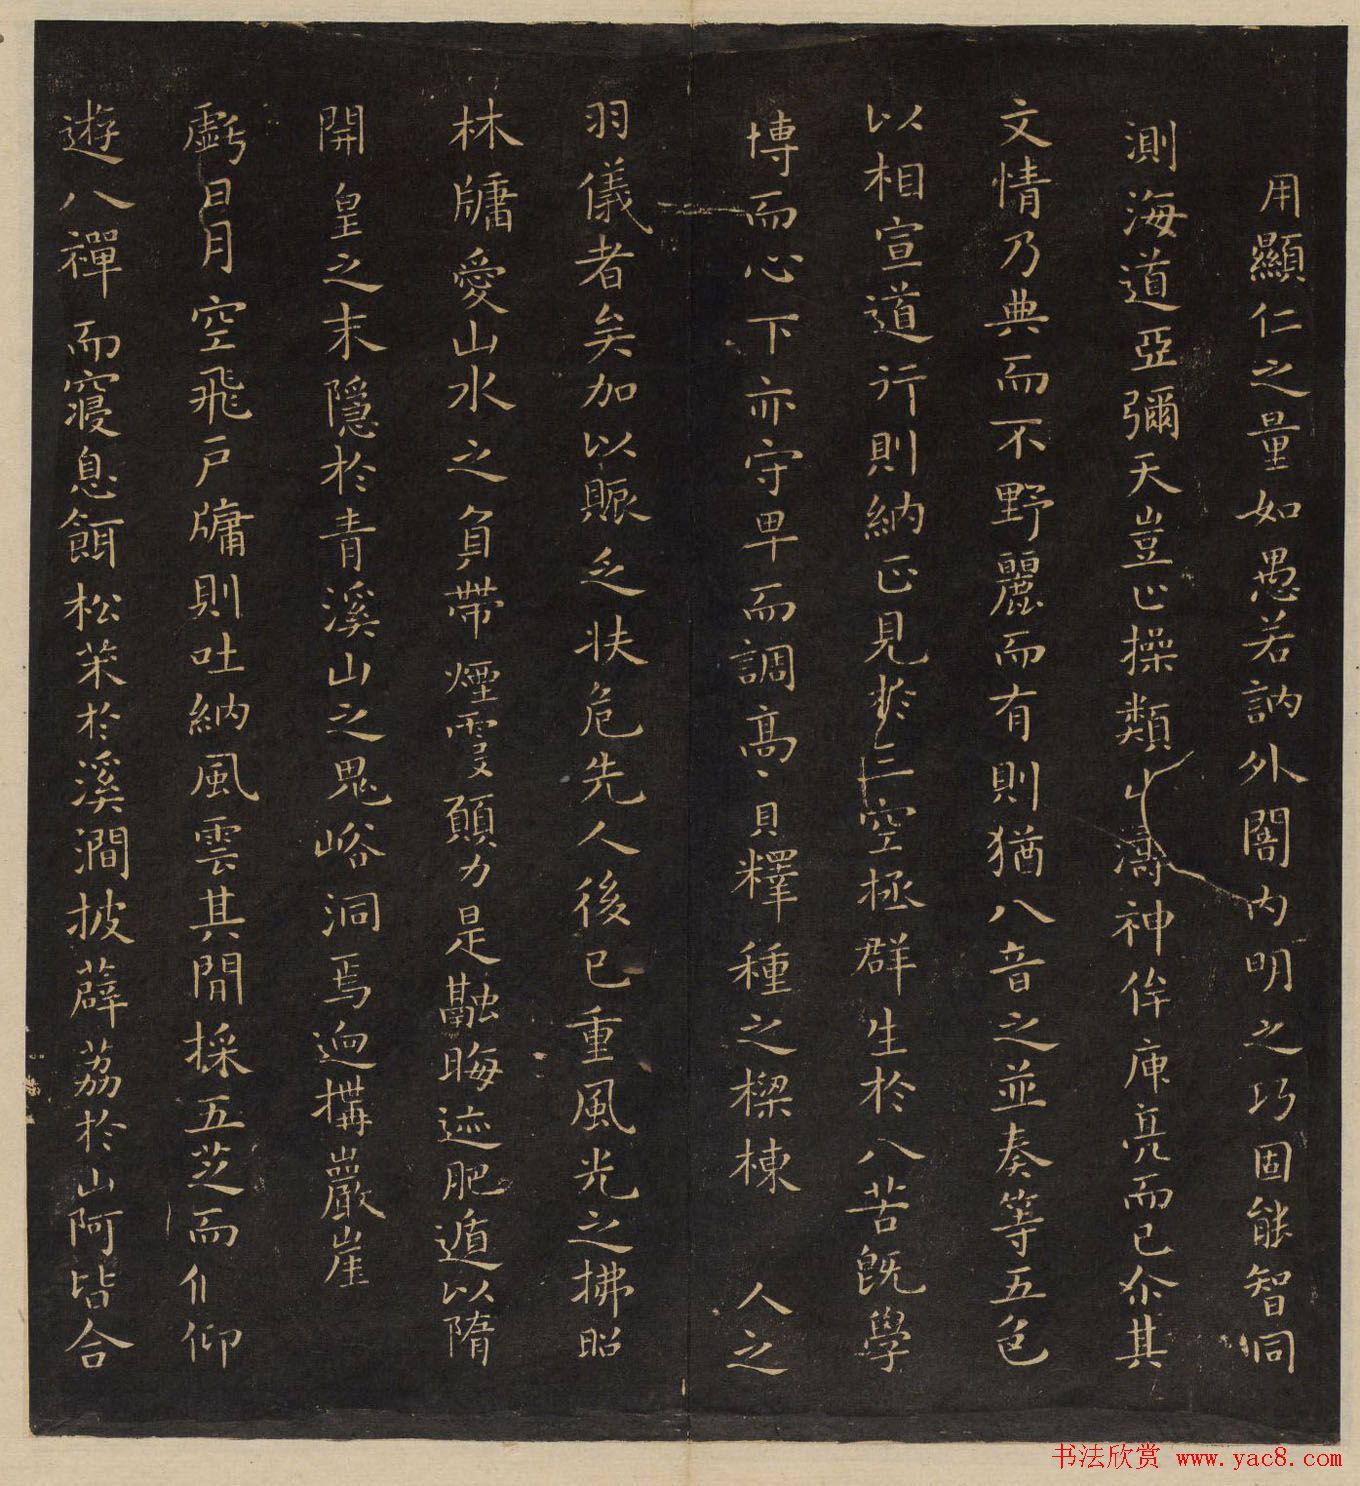 用顯仁之量如愚若訥外闇內明之巧固能智同
測海道亞彌天豈止操類山濤神侔庾亮而已尒其
文情乃典而不野麗而有則猶八音之並奏等五色
以相宣道行則納正見於三空拯群生於八苦既學
博而心下亦守卑而調高實釋種之樑棟 人之
羽儀者矣加以賑乏扶危先人後已重風光之拂照
林牗愛山水之負帶煙霞願力是融晦迹肥遁以隋
開皇之末隱於青溪山之鬼峪洞焉迥構巖崖
虧日月空飛戶牗則吐納風雲其閒採五芝而 仰
遊八禪而寢息餌松荣於溪澗披薜荔於山阿皆合
书法欣赏 www.yac8.com